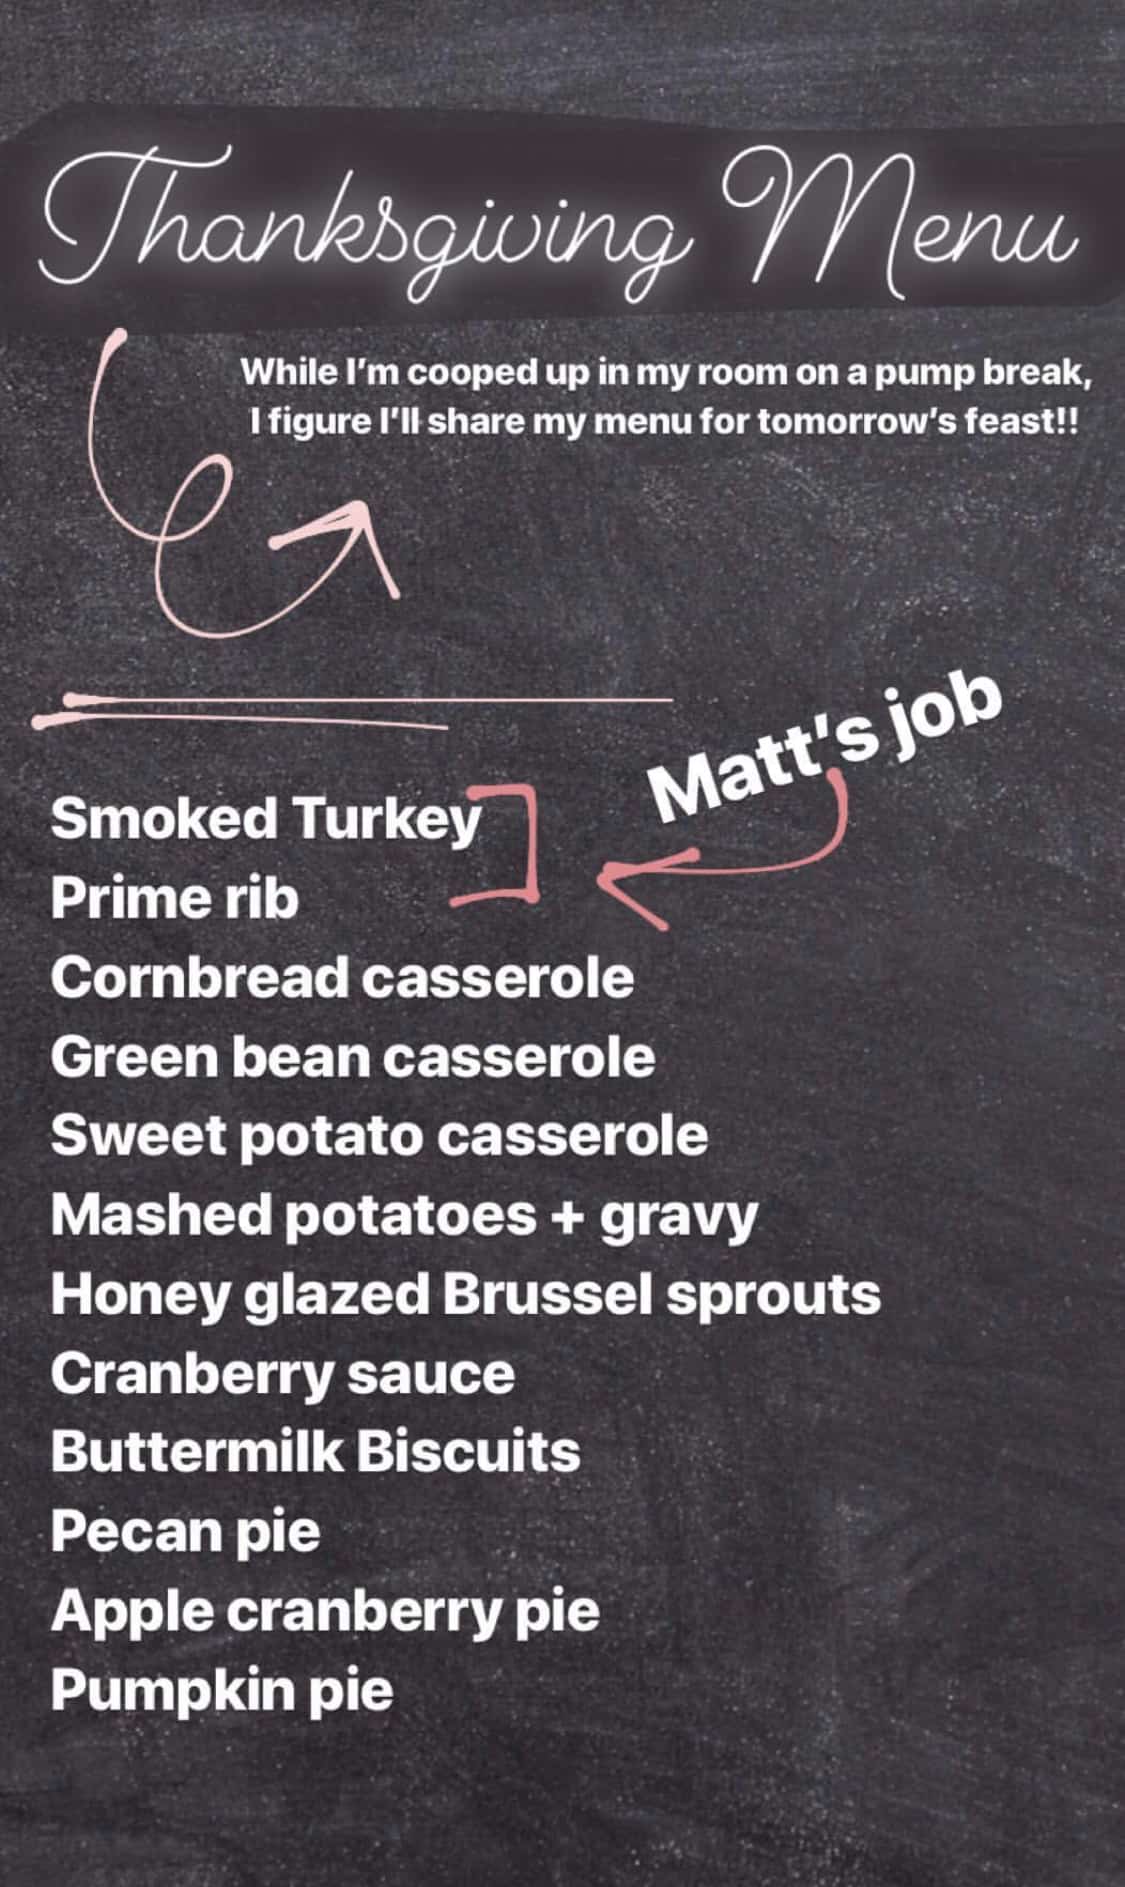 Thanksgiving Menu
While I'm cooped up in my room on a pump break,
I figure I'll share my menu for tomorrow's feast!!
Matt's job
Smoked Turkey
Prime rib
Cornbread casserole
Green bean casserole
Sweet potato casserole
Mashed potatoes + gravy
Honey glazed Brussel sprouts
Cranberry sauce
Buttermilk Biscuits
Pecan pie
Apple cranberry pie
Pumpkin pie